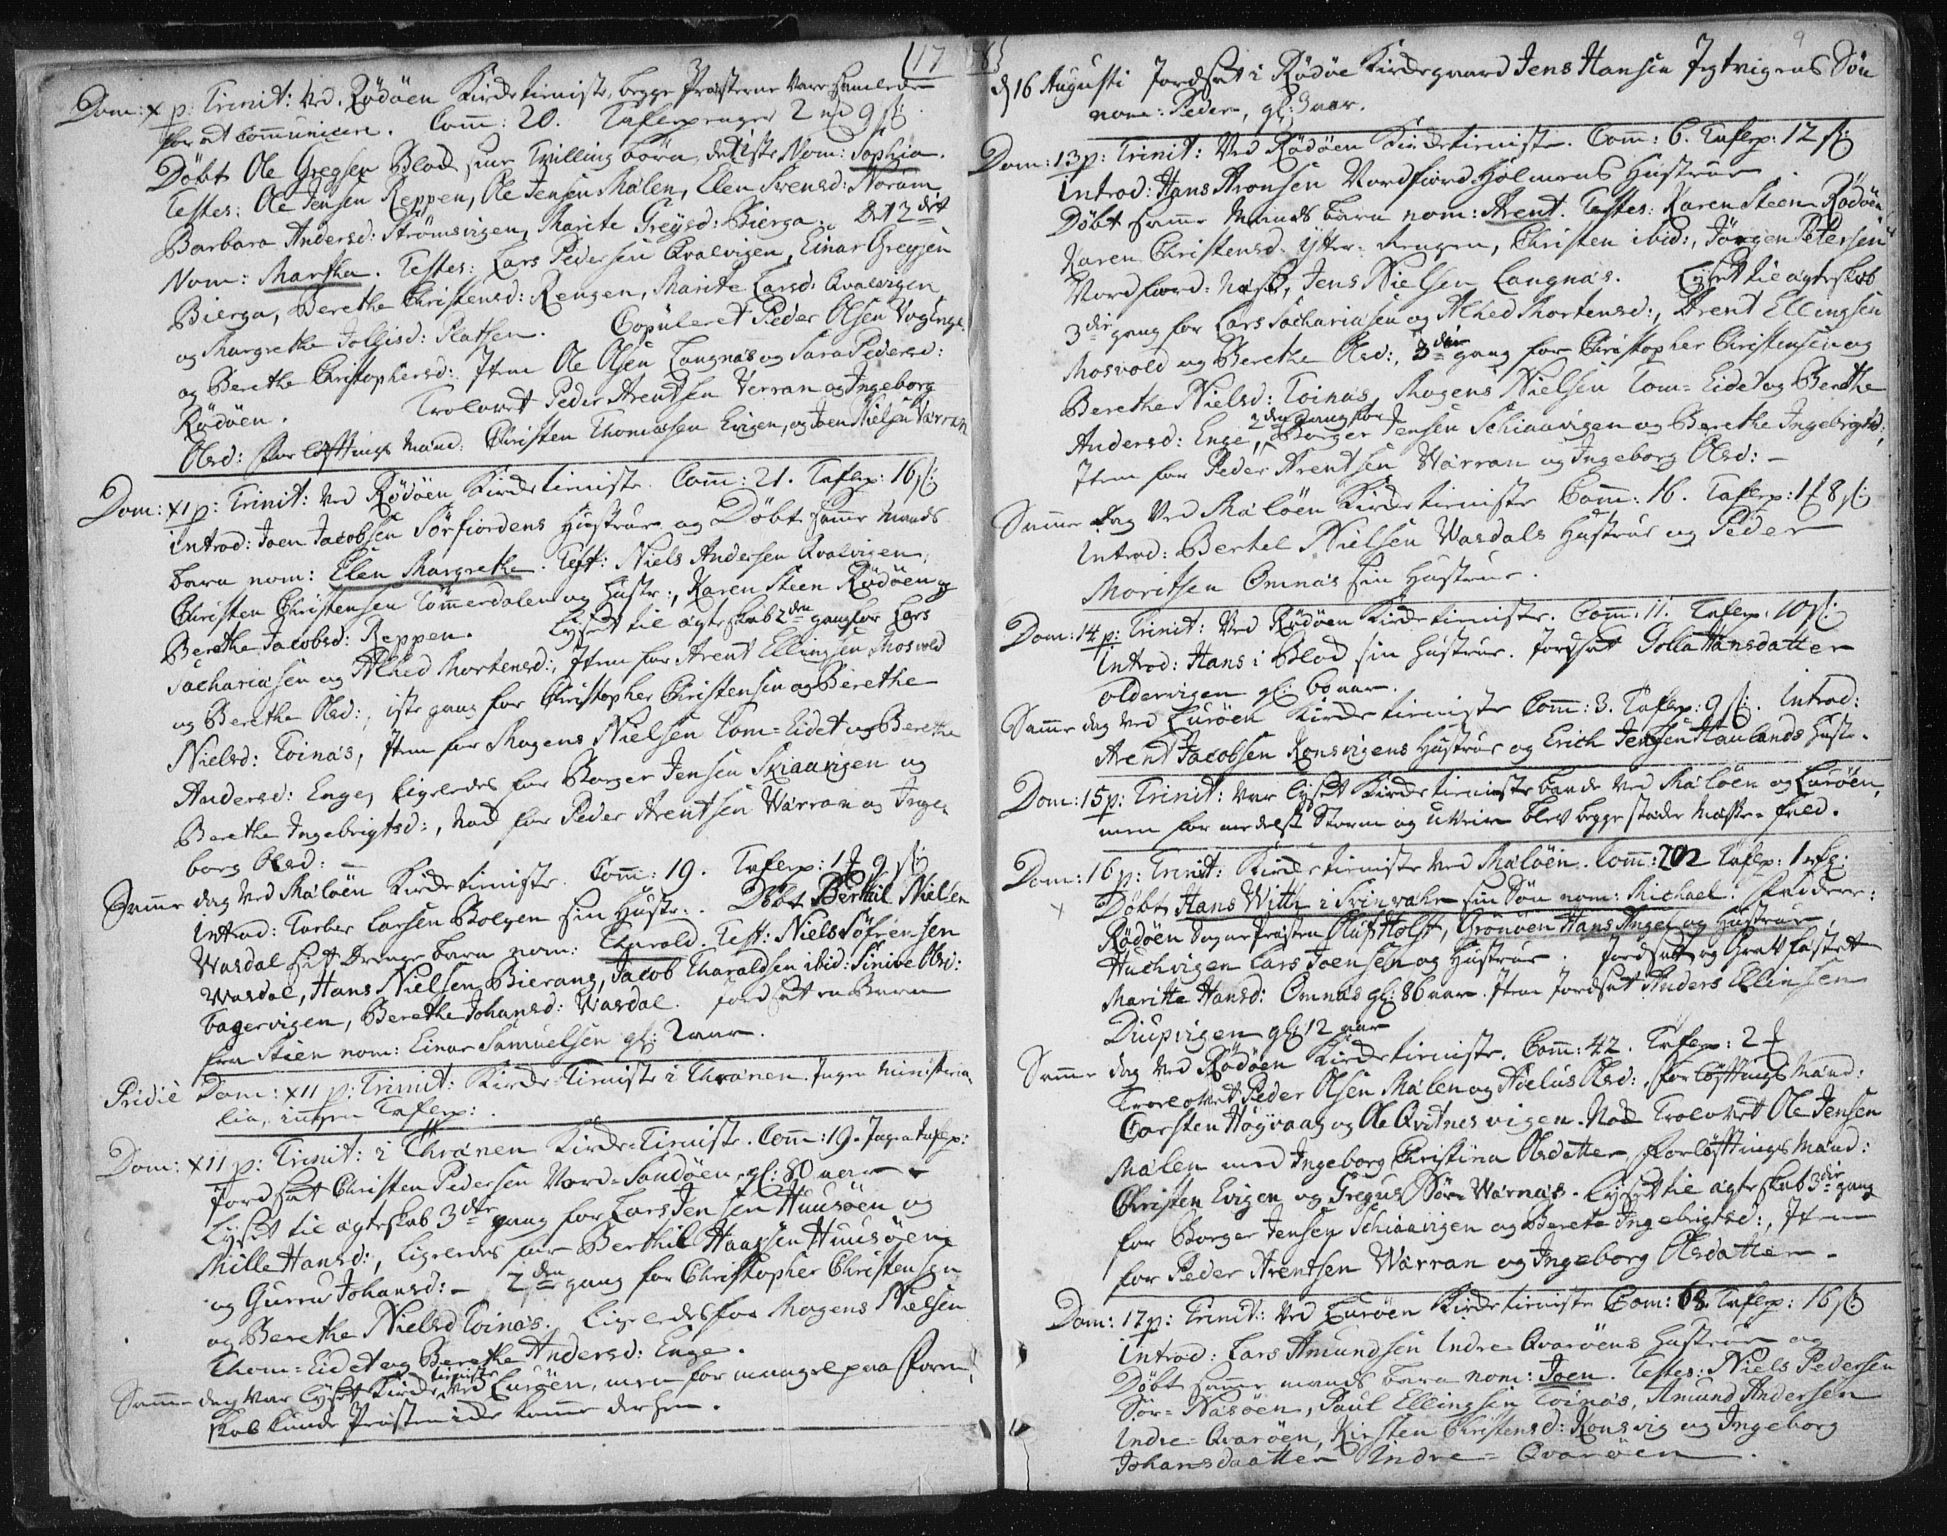 1178
9
Dom: X p: Trinit: Ved Rödöen Kircketieniste, begge Præsterne vare samlede
for at communicere. Com̄: 20. Taflepenger 2 md 9 sk:
Döbt Ole Gregsen Blod sine Tvilling börn, det 1ste Nom: Sophia.
Testes: Ole Jensen Reppen, Ole Jensen Mælen, Elen Svensd: Noram
Barbara Andersd: Strömsvigen, Marite Gregsd: Bierga. Det 2det
Nom: Martha. Testes: Lars Pedersen Qvalvigen, Einar Gregsen
Bierga, Berethe Christensd: Rengen, Marite Larsd: Qvalvigen
og Margrethe Tollefsd: Platsen. Copuleret Peder Olsen Vog Enge
og Berethe Christophersd: Item Ole Olsen Langnæs og Sara Pedersd:
Rödöen. Trolovet Peder Arentsen Verran og Ingeborg
Olsd: forlöftings Mænd: Christen Thomæsen Evigen, og Joen Nielsen Værran
Dom: XI p: Trinit: Ved Rödöen Kircketieniste. Com̄: 21. Taflep: 16 sk:
Introd: Joen Jacobsen Sörfiordens Hustrue og Döbt sam̄e Mands
barn nom: Elen Margrethe. Test: Niels Andersen Qvalvigen,
Christen Christensen Tömmerdalen og Hustr:, Karen Steen Rödöen og
Berethe Jacobsd: Reppen. Lyset til ægteskab 2den gang for Lars
Sachariæsen og Alhed Mortensd:, Item for Arent Ellingsen Mosvold
og Berethe Olsd:, 1ste gang for Christopher Christensen og Berethe
Nielsd: Toinæs, Item for Mogens Nielsen Tom=Eidet og Berethe
Andersd: Enge, ligeledes for Borger Jensen Skiaavigen og
Berethe Ingebrigtsd:, Nok for Peder Arentsen Wærran og Inge-
borg Olsd: —
Sam̄e dag ved Mæløen Kircketieniste. Com̄: 19. Taflep: 1 9 sk:
Introd: Torber Larsen Bolgen sin Hustr:. Döbt Berthil Nielsen
Wasdal sit Drenge barn nom: Tharald. Test: Niels Söfrensen
Wasdal, Hans Nielsen Bierang, Jacob Tharaldsen ibid: Sinive Olsd:
Fagervigen, Berethe Johansd: Wasdal. Jordsat en Barn
fra Stien nom: Einar Samuelsen gl: 2 aar.
Pridiè Dom: XII p: Trinit: Kircke-Tieniste i Thrænen. Ingen Ministeria-
lia, ingen Taflep:.
Dom: XII p: Trinit: i Thrænen Kircke-Tieniste. Com̄: 19. Ingen Taflep:
Jordsat Christen Pedersen Nord-Sandöen, gl: 80 aar.
Lyset til ægteskab 3die gang for Lars Jensen Huusöen og
Mille Hansd:, ligeledes for Berthil Haagsen Huusöen
og Gurru Johansd: — 2den gang for Christopher Christensen
og Berethe Nielsd Toinæs. Ligeledes for Mogens Nielsen
Thom=Eidet og Berethe Andersd: Enge.
Sam̄e dag var lyset Kircketieniste ved Luröen, men for mangel paa Förin-
skab kunde Præsten icke kom̄e dersen.
d 16 Augusti Jordsat i Rödöe Kirckegaard Jens Hansen Jegtvigens Sön
nom: Peder, gl: 3 aar.
Dom: 13 p: Trinit: Ved Rödöen Kircketieniste. Com: 6. Taflep: 12 sk:
Introd: Hans Aronsen Nordfiord-Holmens Hustrue.
Döbt sam̄e Mands barn nom: Arent. Testes: Karen Steen Rödöen,
Karen Christensd. Ytter-Rengen, Christen ibid:, Jörgen Petersen
Nordfiord-Næss, Jens Nielsen Langnæs. Lyset til ægteskab
3die gang for Lars Sachariæsen og Alhed Mortensd:, Arent Ellingsen
Mosvold og Berethe Olsd:, 3die gang for Christopher Christensen og
Berethe Nielsd: Toinæs, Mogens Nielsen Tom=Eidet og Berethe
Andersd: Enge, 2den gang for Borger Jensen Schiaavigen og Berethe Ingebrigtsd:,
Item for Peder Arentsen Wærran og Ingeborg Olsd: —
Sam̄e dag Ved Mæløen Kircketieniste Com̄: 16. Taflep: 1 8 sk:
Introd: Berthel Nielsen Wasdals Hustrue og Peder
Moritsen Omnæs sin Hustrue.
Dom: 14 p: Trinit: Ved Rödöen Kircketieniste. Com̄: 11. Taflep: 10 sk:
Introd: Hans i Blod sin Hustrue. Jordsat Golla Hansdatter
Oldervigen gl: 60 aar.
Sam̄e dag ved Luröen Kircketieniste Com̄: 3. Taflep: 9 sk:. Introd:
Arent Jacobsen Konsvigens Hustrue og Erich Jensen Haulands Hustr.
Dom: 15 p: Trinit: Var lyset Kircketieniste baade ved Mæløen og Luröen,
men formedelst Storm og Uveir blev begge stæder Messe-fald.
Dom: 16 p: Trinit: Kircketieniste ved Mæløen. Com̄: 202 Taflep: 1 rdl:
Döbt Hans With i Svinvær sin Sön nom: Michael. Faddere:
Rödöen Sogne præsten Oluf Holst, Grönöen Hans Angel og Hustrue,
Huchvigen Lars Joensen og Hustrue. Jordsat og Grav kastet
Maritte Hansd: Omnæs gl: 86 aar. Item Jordsat Anders Ellinsen
Diupvigen gl: 12 aar
Sam̄e dag Ved Rödöen Kircketieniste. Com̄: 42. Taflep: 2
Troelovet Peder Olsen Mælen og Aelus Olsd: forlöftings Mænd:
Carsten Högvaag og Ole Qvitnes vigen. Nok Trolovet Ole Jensen
Mælen med Ingeborg Christina Olsdatter, forlöftings Mænd:
Christen Evigen og Gregus Sör-Wærnæs. Lyset til ægteskab 3die gang
for Borger Jensen Schiaavigen og Berete Ingebrigtsd:, Item
for Peder Arentsen Wærran og Ingeborg Olsdatter.
Dom: 17 p: Trinit: Ved Luröen Kircketieniste Com: 68 Taflep: 16 sk:
Introd: Lars Amundsen Indre Qvaröens Hustrue og
Döbt sam̄e mands barn nom: Joen. Testes: Niels Pedersen
Sör-Næsöen, Paul Ellingsen Toinæs, Amund Andersen
Indre-Qvaröen, Kirsten Christensd: Konsvig og Ingeborg
Johansdaatter Indre-Qvaröen.